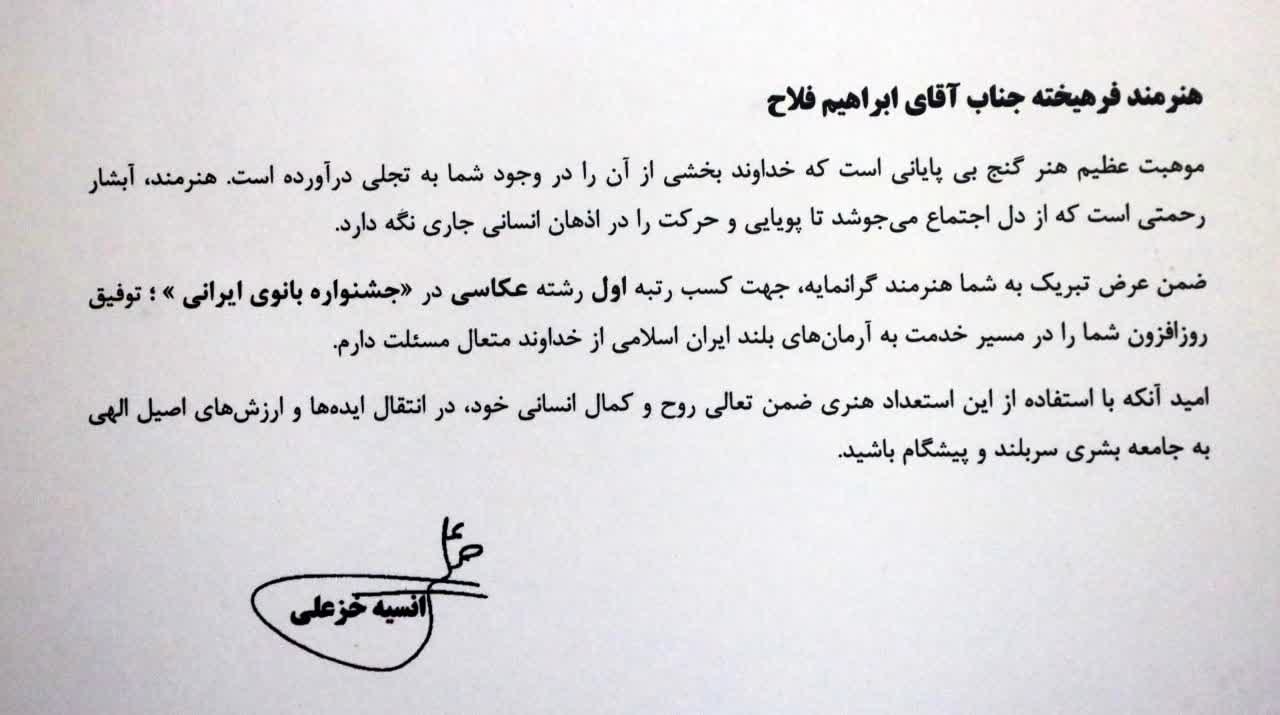 هنرمند فرهیخته جناب آقای ابراهیم فلاح
موهبت عظیم هنر گنج بی پایانی است که خداوند بخشی از آن را در وجود شما به تجلی درآورده است. هنرمند، آبشار
رحمتی است که از دل اجتماع می‌جوشد تا پویایی و حرکت را در اذهان انسانی جاری نگه دارد.
ضمن عرض تبریک به شما هنرمند گرانمایه، جهت کسب رتبه اول رشته عکاسی در «جشنواره بانوی ایرانی » ؛ توفیق
روزافزون شما را در مسیر خدمت به آرمان‌های بلند ایران اسلامی از خداوند متعال مسئلت دارم.
امید آنکه با استفاده از این استعداد هنری ضمن تعالی روح و کمال انسانی خود، در انتقال ایده‌ها و ارزش‌های اصیل الهی
به جامعه بشری سربلند و پیشگام باشید.
انسیه خزعلی